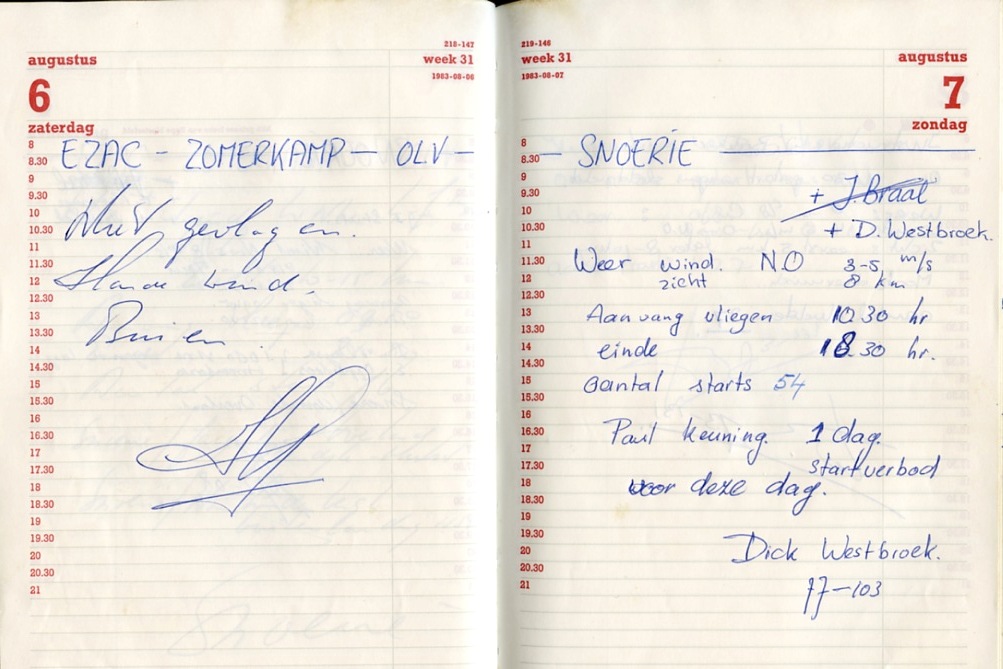 218-147
augustus
week 31
1983-08-06
6
zaterdag
8
8.30
9
9.30
10
10.30
11
11.30
12
12.30
13
13.30
14
14.30
15
15.30
16
16.30
17
17.30
18
18.30
19
19.30
20
20.30
21
EZAC - ZOMERKAMP - OLV -
Niet gevlogen.
Harde wind.
Buien.
219-146
week 31
augustus
1983-08-07
7
zondag
8
8.30
9
9.30
10
10.30
11
11.30
12
12.30
13
13.30
14
14.30
15
15.30
16
16.30
17
17.30
18
18.30
19
19.30
20
20.30
21
- SNOERIE
+ J. Braal
+ D. Westbroek.
Weer wind. NO 3-5 m/s
zicht 8 km
Aanvang vliegen 10.30 hr
einde 18.30 hr.
aantal starts 54
Paul Keuning. 1 dag.
startverbod
voor deze dag.
Dick Westbroek.
77-103